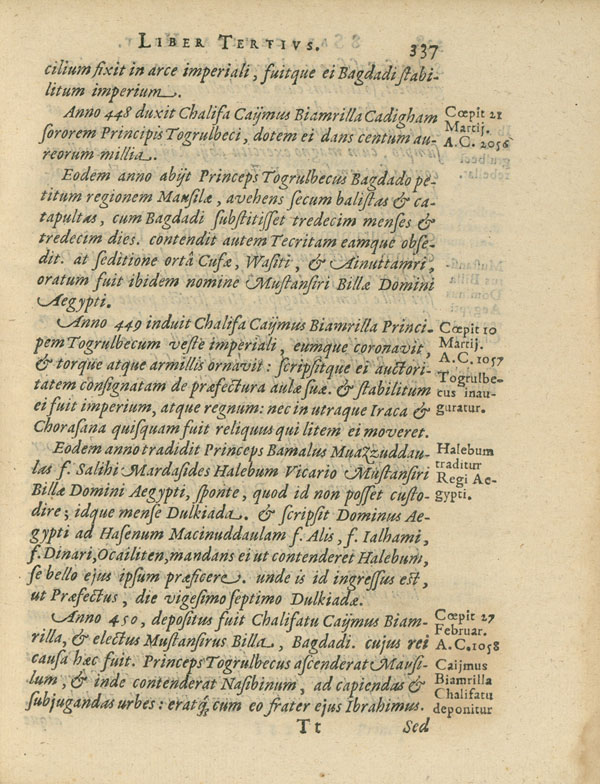 LIBER TERTIVS. 337
cilium fixit in arce imperiali, fuitque ei Bagdadi stabi-
litum imperium.
Anno 448 duxit Chalifa Caijmus Biamrilla Cadigham
sororem Principis Togrulbeci, dotem ei dans centum au-
reorum millia.
Cœpit 21
Martij.
A.C. 2056
Eodem anno abijt Princeps Togrulbecus Bagdado pe-
titum regionem Mausilæ, avehens secum balistas & ca-
tapultas, cum Bagdadi substitisset tredecim menses &
tredecim dies. contendit autem Tecritam eamque obse-
dit. at seditione ortâ Cufæ, Wasiti, & Ainuttamri,
oratum fuit ibidem nomine Mustansiri Billæ Domini
Aegypti.
Anno 449 induit Chalifa Caijmus Biamrilla Princi-
pem Togrulbecum veste imperiali, eumque coronavit,
& torque atque armillis ornavit: scripsitque ei auctori-
tatem consignatam de præfectura aulæ suæ. & stabilitum
ei fuit imperium, atque regnum: nec in utraque Iraca &
Chorasana quisquam fuit reliquus qui litem ei moveret.
Cœpit 10
Martij.
A.C. 1057
Togrulbe-
cus inau-
guratur.
Eodem anno tradidit Princeps Bamalus Muazzuddau-
las f. Salihi Mardasides Halebum Vicario Mustansiri
Billæ Domini Aegypti, sponte, quod id non posset custo-
dire; idque mense Dulkiada. & scripsit Dominus Ae-
gypti ad Hasenum Macinuddaulam f. Alis, f. Ialhami,
f. Dinari, Ocailiten, mandans ei ut contenderet Halebum,
se bello ejus ipsum præficere. unde is id ingressus est,
ut Præfectus, die vigesimo septimo Dulkiadæ.
Halebum
traditur
Regi Ae-
gypti.
Anno 450, depositus fuit Chalifatu Caijmus Biam-
rilla, & electus Mustansirus Billa, Bagdadi. cujus rei
causa hæc fuit. Princeps Togrulbecus ascenderat Mausi-
lum, & inde contenderat Nasibinum, ad capiendas &
subjugandas urbes: eratq́; cum eo frater ejus Ibrahimus.
Cœpit 27
Februar.
A.C. 1058
Caijmus
Biamrilla
Chalifatu
deponitur
Tt Sed